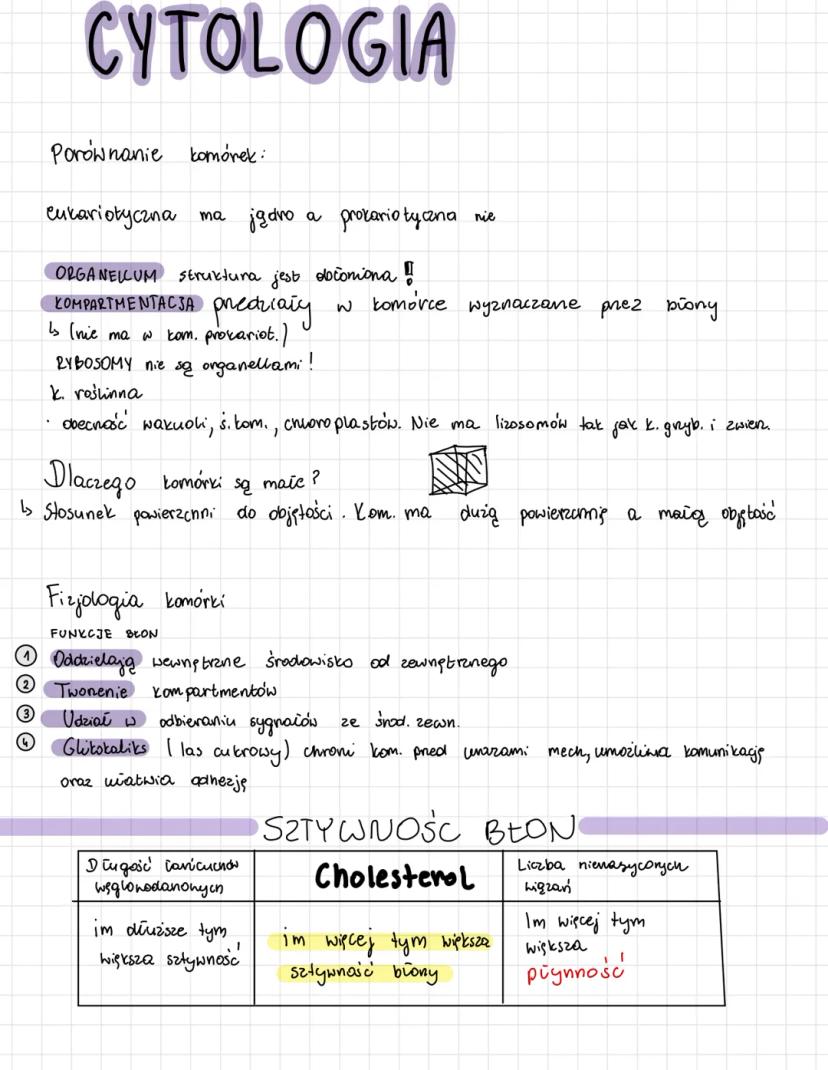 CYTOLOGIA
Porównanie komórek:
eukariotyczna ma jądro a prokariotyczna nie
ORGANELLUM struktura jest obłoniona!
KOMPARTMENTACJA przedziały w komórce wyznaczane przez błony
↳ (nie ma w kom. prokariot.)
RYBOSOMY nie są organellami!
k. roślinna
· obecność wakuoli, ś. kom., chloroplastów. Nie ma lizosomów tak jak k. grzyb. i zwierz.
Dlaczego komórki są małe?
↳ Stosunek powierzchni do objętości. Kom. ma dużą powierzchnię a małą objętość
Fizjologia komórki
FUNKCJE BŁON
1 Oddzielają wewnętrzne środowisko od zewnętrznego
2 Tworzenie kompartmentów
3 Udział w odbieraniu sygnałów ze środ. zewn.
4 Glikokaliks (las cukrowy) chroni kom. przed urazami mech, umożliwia komunikację
oraz ułatwia adhezję
SZTYWNOŚĆ BŁON
Długość łańcuchów
węglowodorowych
im dłuższe tym
większa sztywność
Cholesterol
im więcej tym większa
sztywność błony
Liczba nienasyconych
wiązań
Im więcej tym
większa
płynność